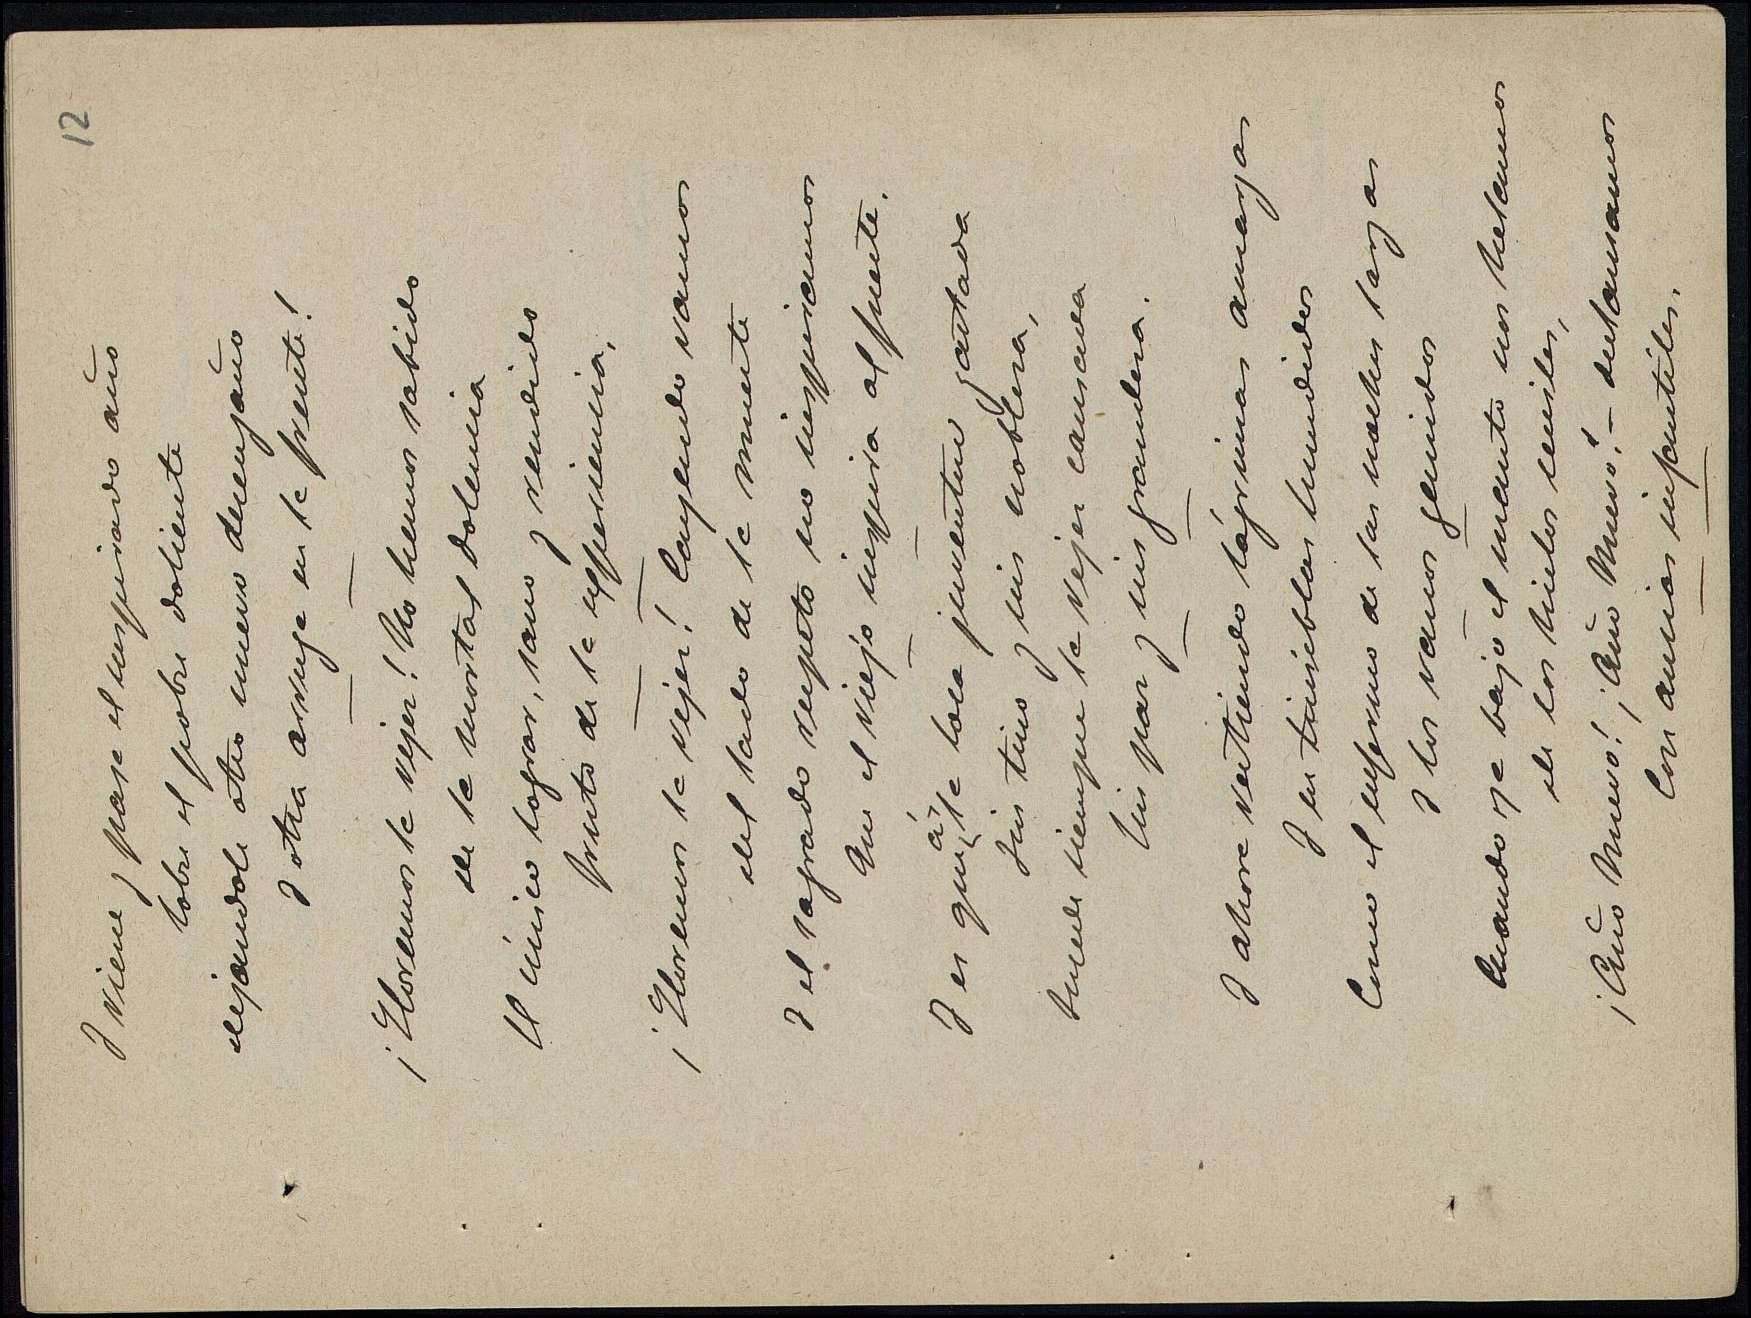 12
Y viene y pasa el suspirado año
sobre el pobre doliente
dejandole otro nuevo desengaño
y otra arruga en la frente!
¡Lloremos la vejez! No hemos sabido
de la mortal dolencia
El único lograr, sano y rendido
fruto de la esperiencia,
¡Lloremos la vejez! Cayendo vamos
del lado de la muerte
y el sagrado respeto no inspiramos
Que el viejo inspira al fuerte.
Y es que á la loca juventud gastada
sin tino y sin nobleza,
sucede siempre la vejez cansada
sin paz y sin grandeza.
Y ahora vertiendo lágrimas amargas
y en tinieblas hundidos
Como el enfermo de las noches largas
y los vanos gemidos
Cuando ya bajo el manto nos helamos
de los hielos seniles,
¡Año Nuevo! ¡Año Nuevo! –
Con ansias infantiles.